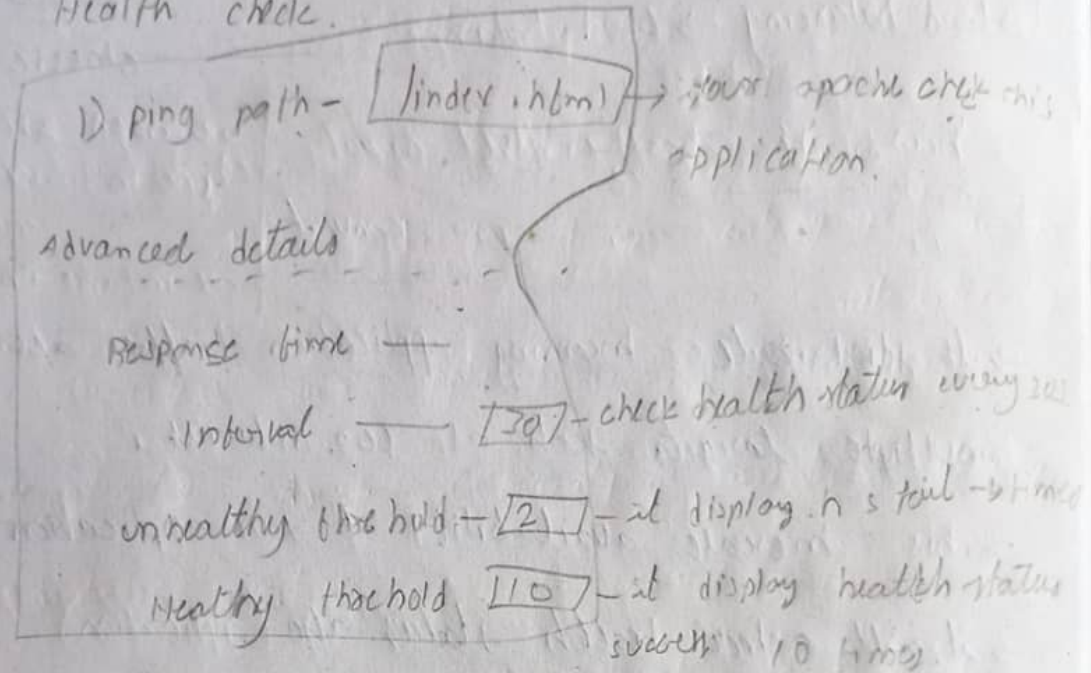 Health check.
1) ping path - /index.html → your apache chek this
application.
Advanced details
Response time —
Interval — 30 - check health status every
unhealthy threhold - 2 - it display h s fail
Healthy threhold 10 - it display health status
success 10 times.